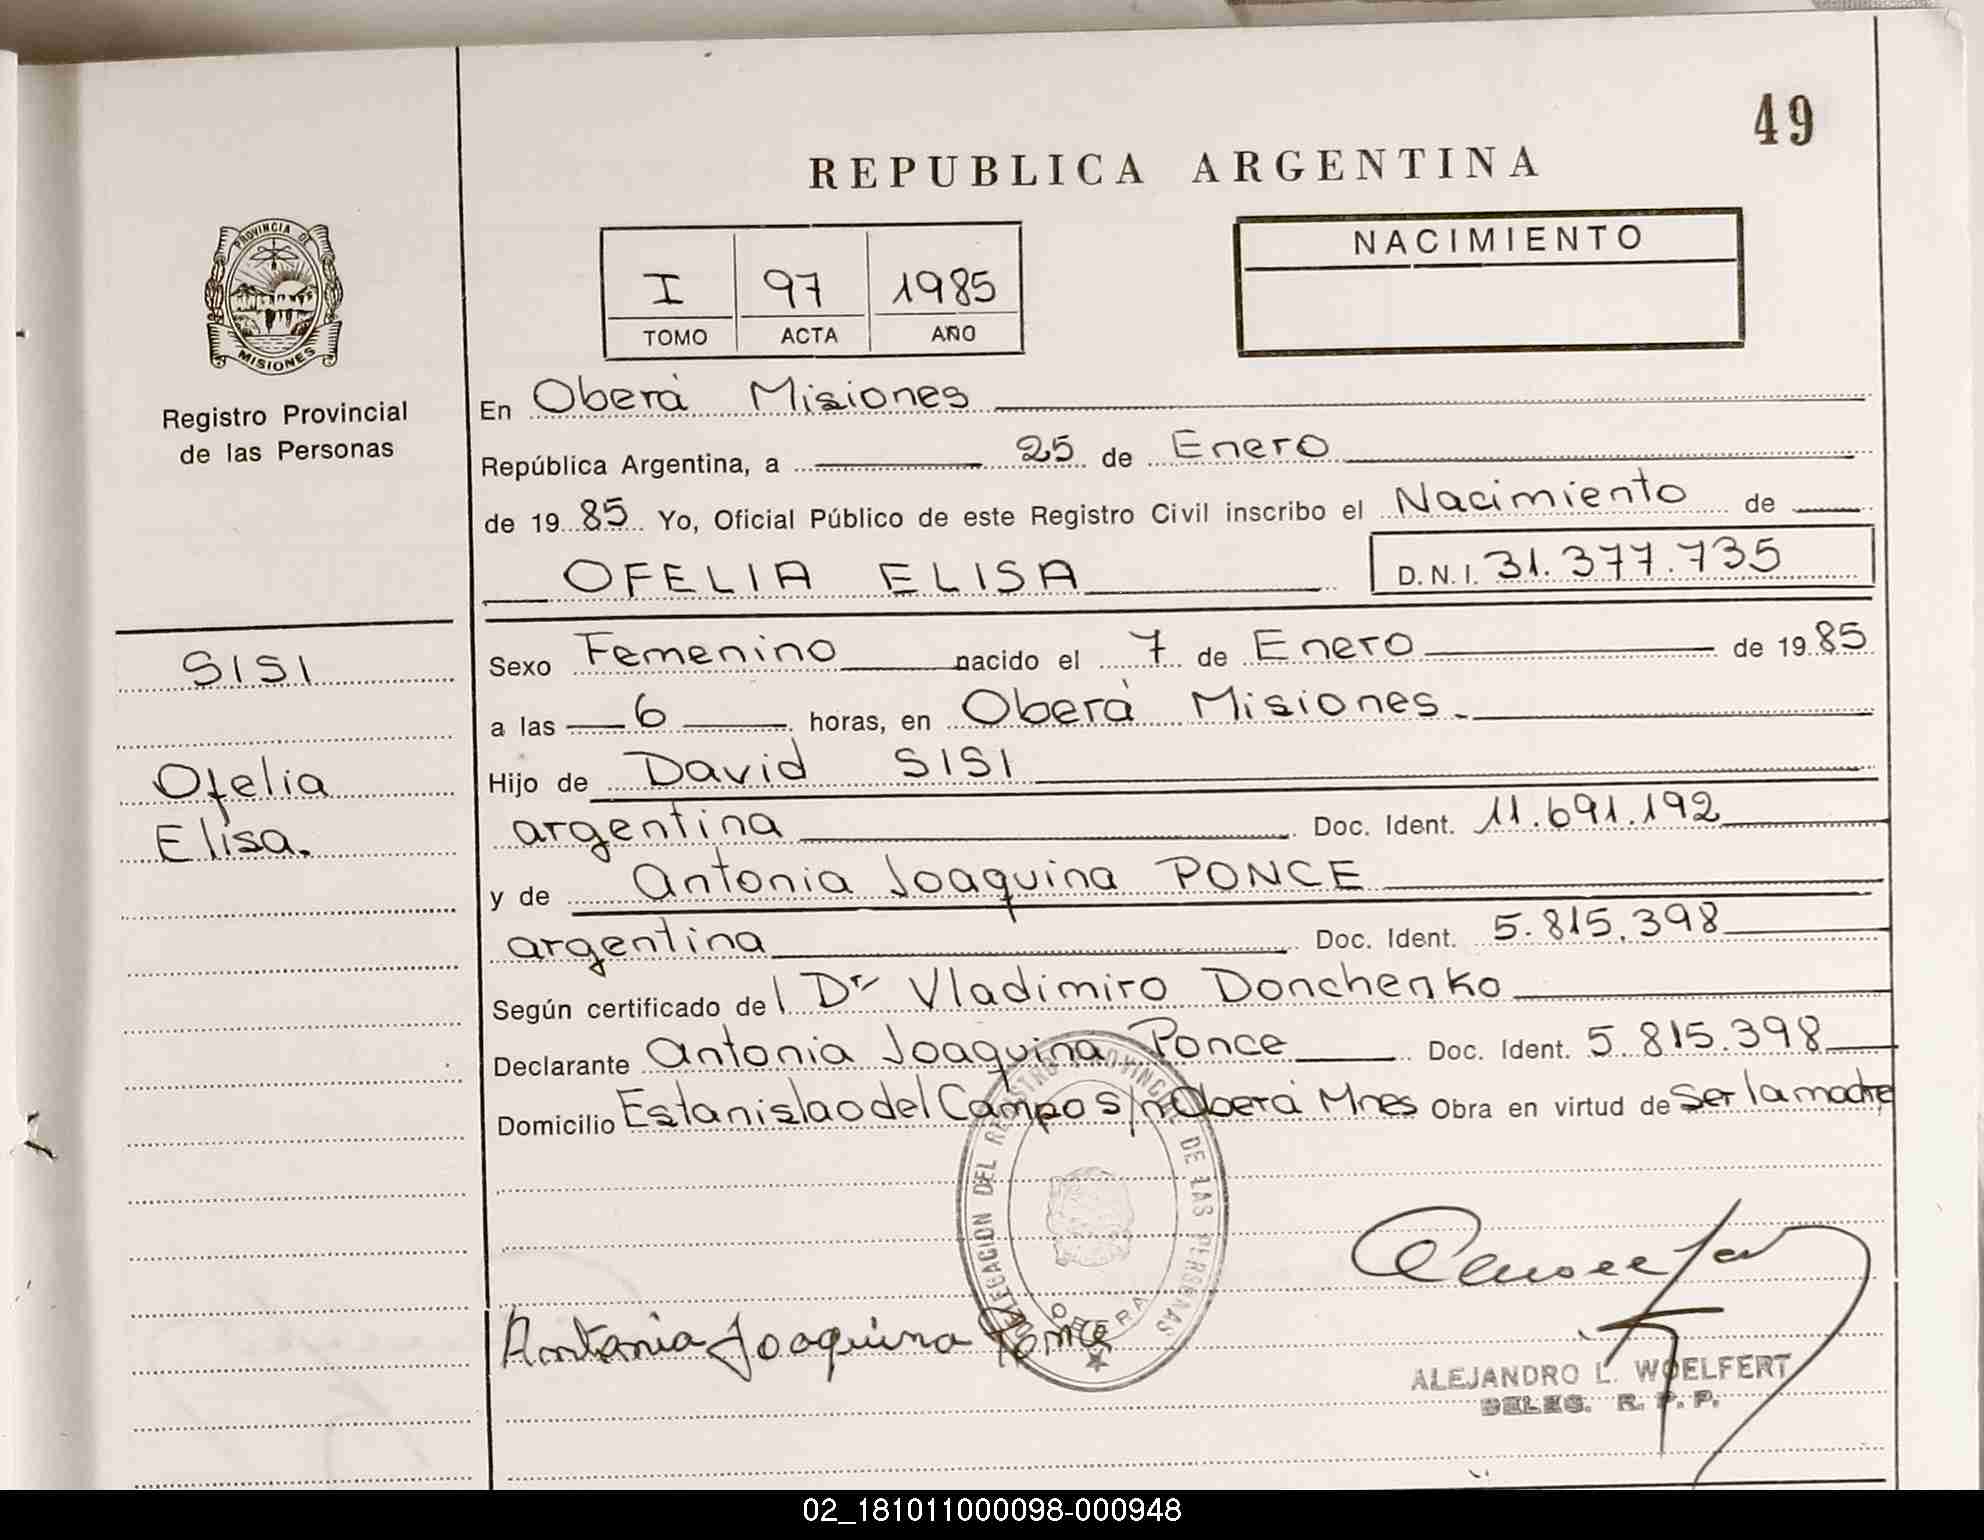 49
REPUBLICA ARGENTINA
PROVINCIA DE
MISIONES
Registro Provincial
de las Personas
I 97 1985
TOMO ACTA AÑO
NACIMIENTO
En Oberá Misiones
República Argentina, a 25 de Enero
de 1985 Yo, Oficial Público de este Registro Civil inscribo el Nacimiento de
OFELIA ELISA D.N.I. 31.377.735
SISI
Ofelia
Elisa.
Sexo Femenino nacido el 7 de Enero de 1985
a las 6 horas, en Oberá Misiones.
Hijo de David SISI
argentina Doc. Ident. 11.691.192
y de Antonia Joaquina PONCE
argentina Doc. Ident. 5.815.398
Según certificado del Dr Vladimiro Donchenko
Declarante Antonia Joaquina Ponce Doc. Ident. 5.815.398
Domicilio Estanislao del Campo S/n Oberá Mnes Obra en virtud de Ser la madre
DELEGACION DEL REGISTRO PROVINCIAL DE LAS PERSONAS
OBERA
Antonia Joaquina Ponce
ALEJANDRO L. WOELFERT
DELEG. R. P. P.
02_181011000098-000948